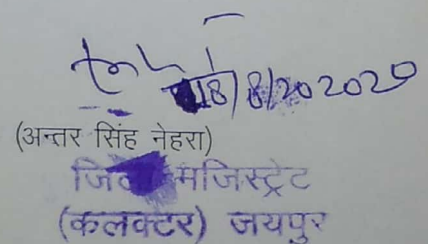 18/8/20 2020
(अन्तर सिंह नेहरा)
मजिस्ट्रेट
(कलक्टर) जयपुर